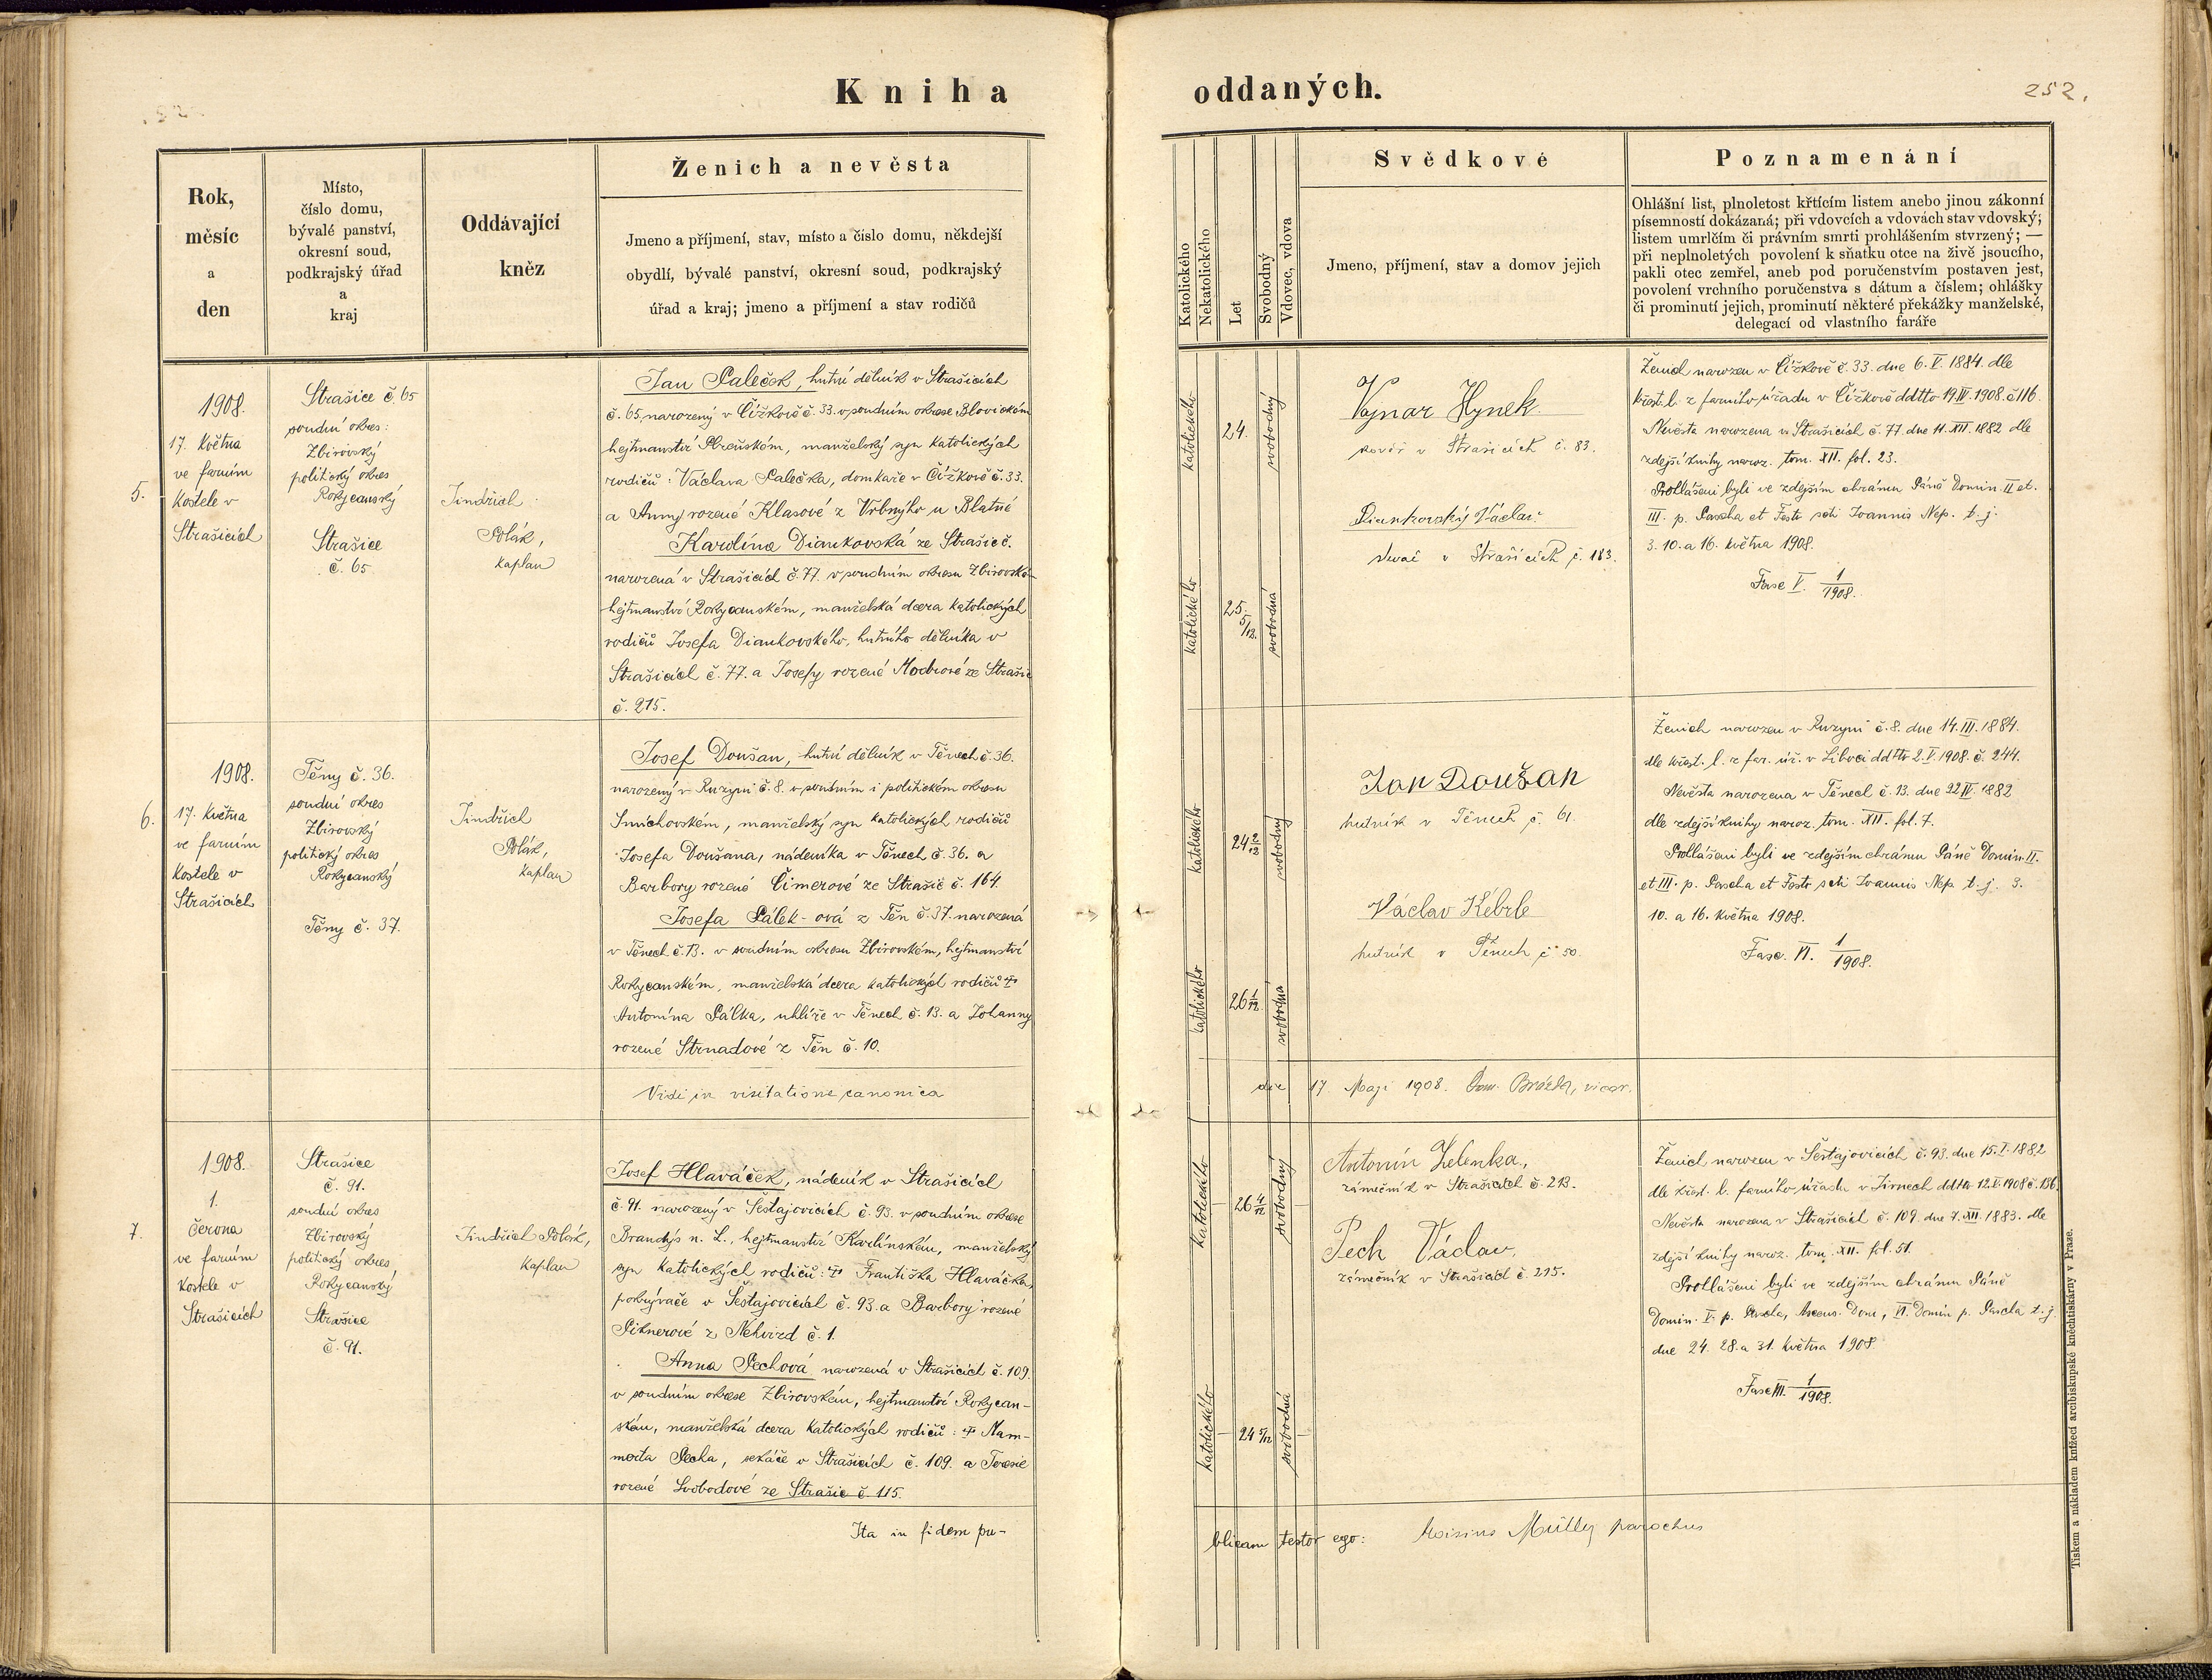 Kniha
oddaných.
252.
Rok,
měsíc
a
den
Místo,
číslo domu,
bývalé panství,
okresní soud,
podkrajský úřad
a
kraj
Oddávající
kněz
Ženich a nevěsta
Jmeno a příjmení, stav, místo a číslo domu, někdejší
obydlí, bývalé panství, okresní soud, podkrajský
úřad a kraj; jmeno a příjmení a stav rodičů
Katolického
Nekatolického
Let
Svobodný
Vdovec, vdova
Svědkové
Jmeno, příjmení, stav a domov jejich
Poznamenání
Ohlášní list, plnoletost křtícím listem anebo jinou zákonní
písemností dokázaná; při vdovcích a vdovách stav vdovský;
listem umrlčím či právním smrti prohlášením stvrzený; —
při neplnoletých povolení k sňatku otce na živě jsoucího,
pakli otec zemřel, aneb pod poručenstvím postaven jest,
povolení vrchního poručenstva s dátum a číslem; ohlášky
či prominutí jejich, prominutí některé překážky manželské,
delegací od vlastního faráře
5.
1908.
17. května
ve farním
kostele v
Strašicích
Strašice č. 65
soudní okres:
Zbirovský
politický okres
Rokycanský
Strašice
č. 65
Jindřich
Polák,
kaplan
Jan Paleček, hutní dělník v Strašicích
č. 65, narozený v Čížkově č. 33. v soudním okrese Blovickém
hejtmanství Plzeňském, manželský syn katolických
rodičů: Václava Palečka, domkaře v Čížkově č. 33.
a Anny rozené Klasové z Vrbnýho u Blatné
Karolína Diankovská ze Strašic č.
narozená v Strašicích č. 77. v soudním okresu Zbirovském
hejtmanství Rokycanském, manželská dcera katolických
rodičů Josefa Diankovského, hutního dělníka v
Strašicích č. 77. a Josefy rozené ze Strašic
č. 215.
katolického
24.
svobodný
katolického
25. 5/12.
svobodná
Vajnar Hynek
kovář v Strašicích č. 83.
Diankovský Václav
v Strašicích č. 183.
Ženich narozen v Čížkově č. 33. dne 6. V. 1884. dle
křest. l. z farního úřadu v Čížkově ddtto 19. IV. 1908. č. 116.
Nevěsta narozena v Strašicích č. 77. dne 11. XII. 1882 dle
zdejší knihy naroz. tom. XII. fol. 23.
Prohlášeni byli ve zdejším chrámu Páně Domin. II et.
III. p. Pascha et Festo scti Joannis Nep. t. j.
3. 10. a 16. května 1908.
Fasc. V. 1/1908.
6.
1908.
17. května
ve farním
kostele v
Strašicích
Těny č. 36.
soudní okres
Zbirovský
politický okres
Rokycanský
Těny č. 37.
Jindřich
Polák,
kaplan
Josef Doušan, hutní dělník v Těnech č. 36.
narozený v Ruzyni č. 8. v soudním i politickém okresu
Smíchovském, manželský syn katolických rodičů
Josefa Doušana, nádeníka v Těnech č. 36. a
Barbory rozené Čimerové ze Strašic č. 164.
Josefa Pálek-ová z Těn č. 37. narozená
v Těnech č. 13. v soudním okresu Zbirovském, hejtmanství
Rokycanském, manželská dcera katolických rodičů †
Antonína Pálka, uhlíře v Těnech č. 13. a Johanny
rozené Strnadové z Těn č. 10.
katolického
24 2/12
svobodný
katolického
26 1/12.
svobodná
Jan Doušan
hutník v Těnech č. 61.
Václav Kébrle
hutník v Těnech č. 50.
Ženich narozen v Ruzyni č. 8. dne 14. III. 1884.
dle křest. l. z far. úř. v Liboci ddtto 2. V. 1908. č. 244.
Nevěsta narozena v Těnech č. 13. dne 22 IV. 1882
dle zdejší knihy naroz. tom. XII. fol. 7.
Prohlášeni byli ve zdejším chrámu Páně Domin. II.
et III. p. Pascha et Festo scti Joannis Nep. t. j. 3.
10. a 16. května 1908.
Fasc. VI. 1/1908.
Vidi in visitatione canonica
die 17. Maji 1908. Dom. Brázda, vicar.
7.
1908.
1.
června
ve farním
kostele v
Strašicích
Strašice
č. 91.
soudní okres
Zbirovský
politický okres,
Rokycanský
Strašice
č. 91.
Jindřich Polák,
kaplan
Josef Hlaváček, nádeník v Strašicích
č. 91. narozený v Šestajovicích č. 93. v soudním okrese
Brandýs n. L., hejtmanství Karlínském, manželský
syn katolických rodičů: † Františka Hlaváčka,
pokrývače v Šestajovicích č. 93. a Barbory rozené
z Nehvizd č. 1.
Anna Pechová narozená v Strašicích č. 109.
v soudním okrese Zbirovském, hejtmanství Rokycan-
ském, manželská dcera katolických rodičů: † Mam-
merta Pecha, sekáče v Strašicích č. 109. a Terezie
rozené Svobodové ze Strašic č. 115.
katolického
26 4/12
svobodný
katolického
24 5/12
svobodná
Antonín Zelenka,
zámečník v Strašicích č. 213.
Pech Václav,
zámečník v Strašicích č. 215.
Ženich narozen v Šestajovicích č. 93. dne 15. I. 1882
dle křest. l. farního úřadu v Jirnech ddtto 12. V. 1908 č. 136
Nevěsta narozena v Strašicích č. 109. dne 7. XII. 1883. dle
zdejší knihy naroz. tom. XII. fol. 51.
Prohlášeni byli ve zdejším chrámu Páně
Domin. V. p. Pascha, Ascens. Dom, VI. Domin p. Pascha t. j.
dne 24. 28. a 31. května 1908.
Fasc. VII. 1/1908.
Ita in fidem pu-
blicam testor ego: Aloisius Müller parochus
Tiskem a nákladem knížecí arcibiskupské kněhtiskárny v Praze.